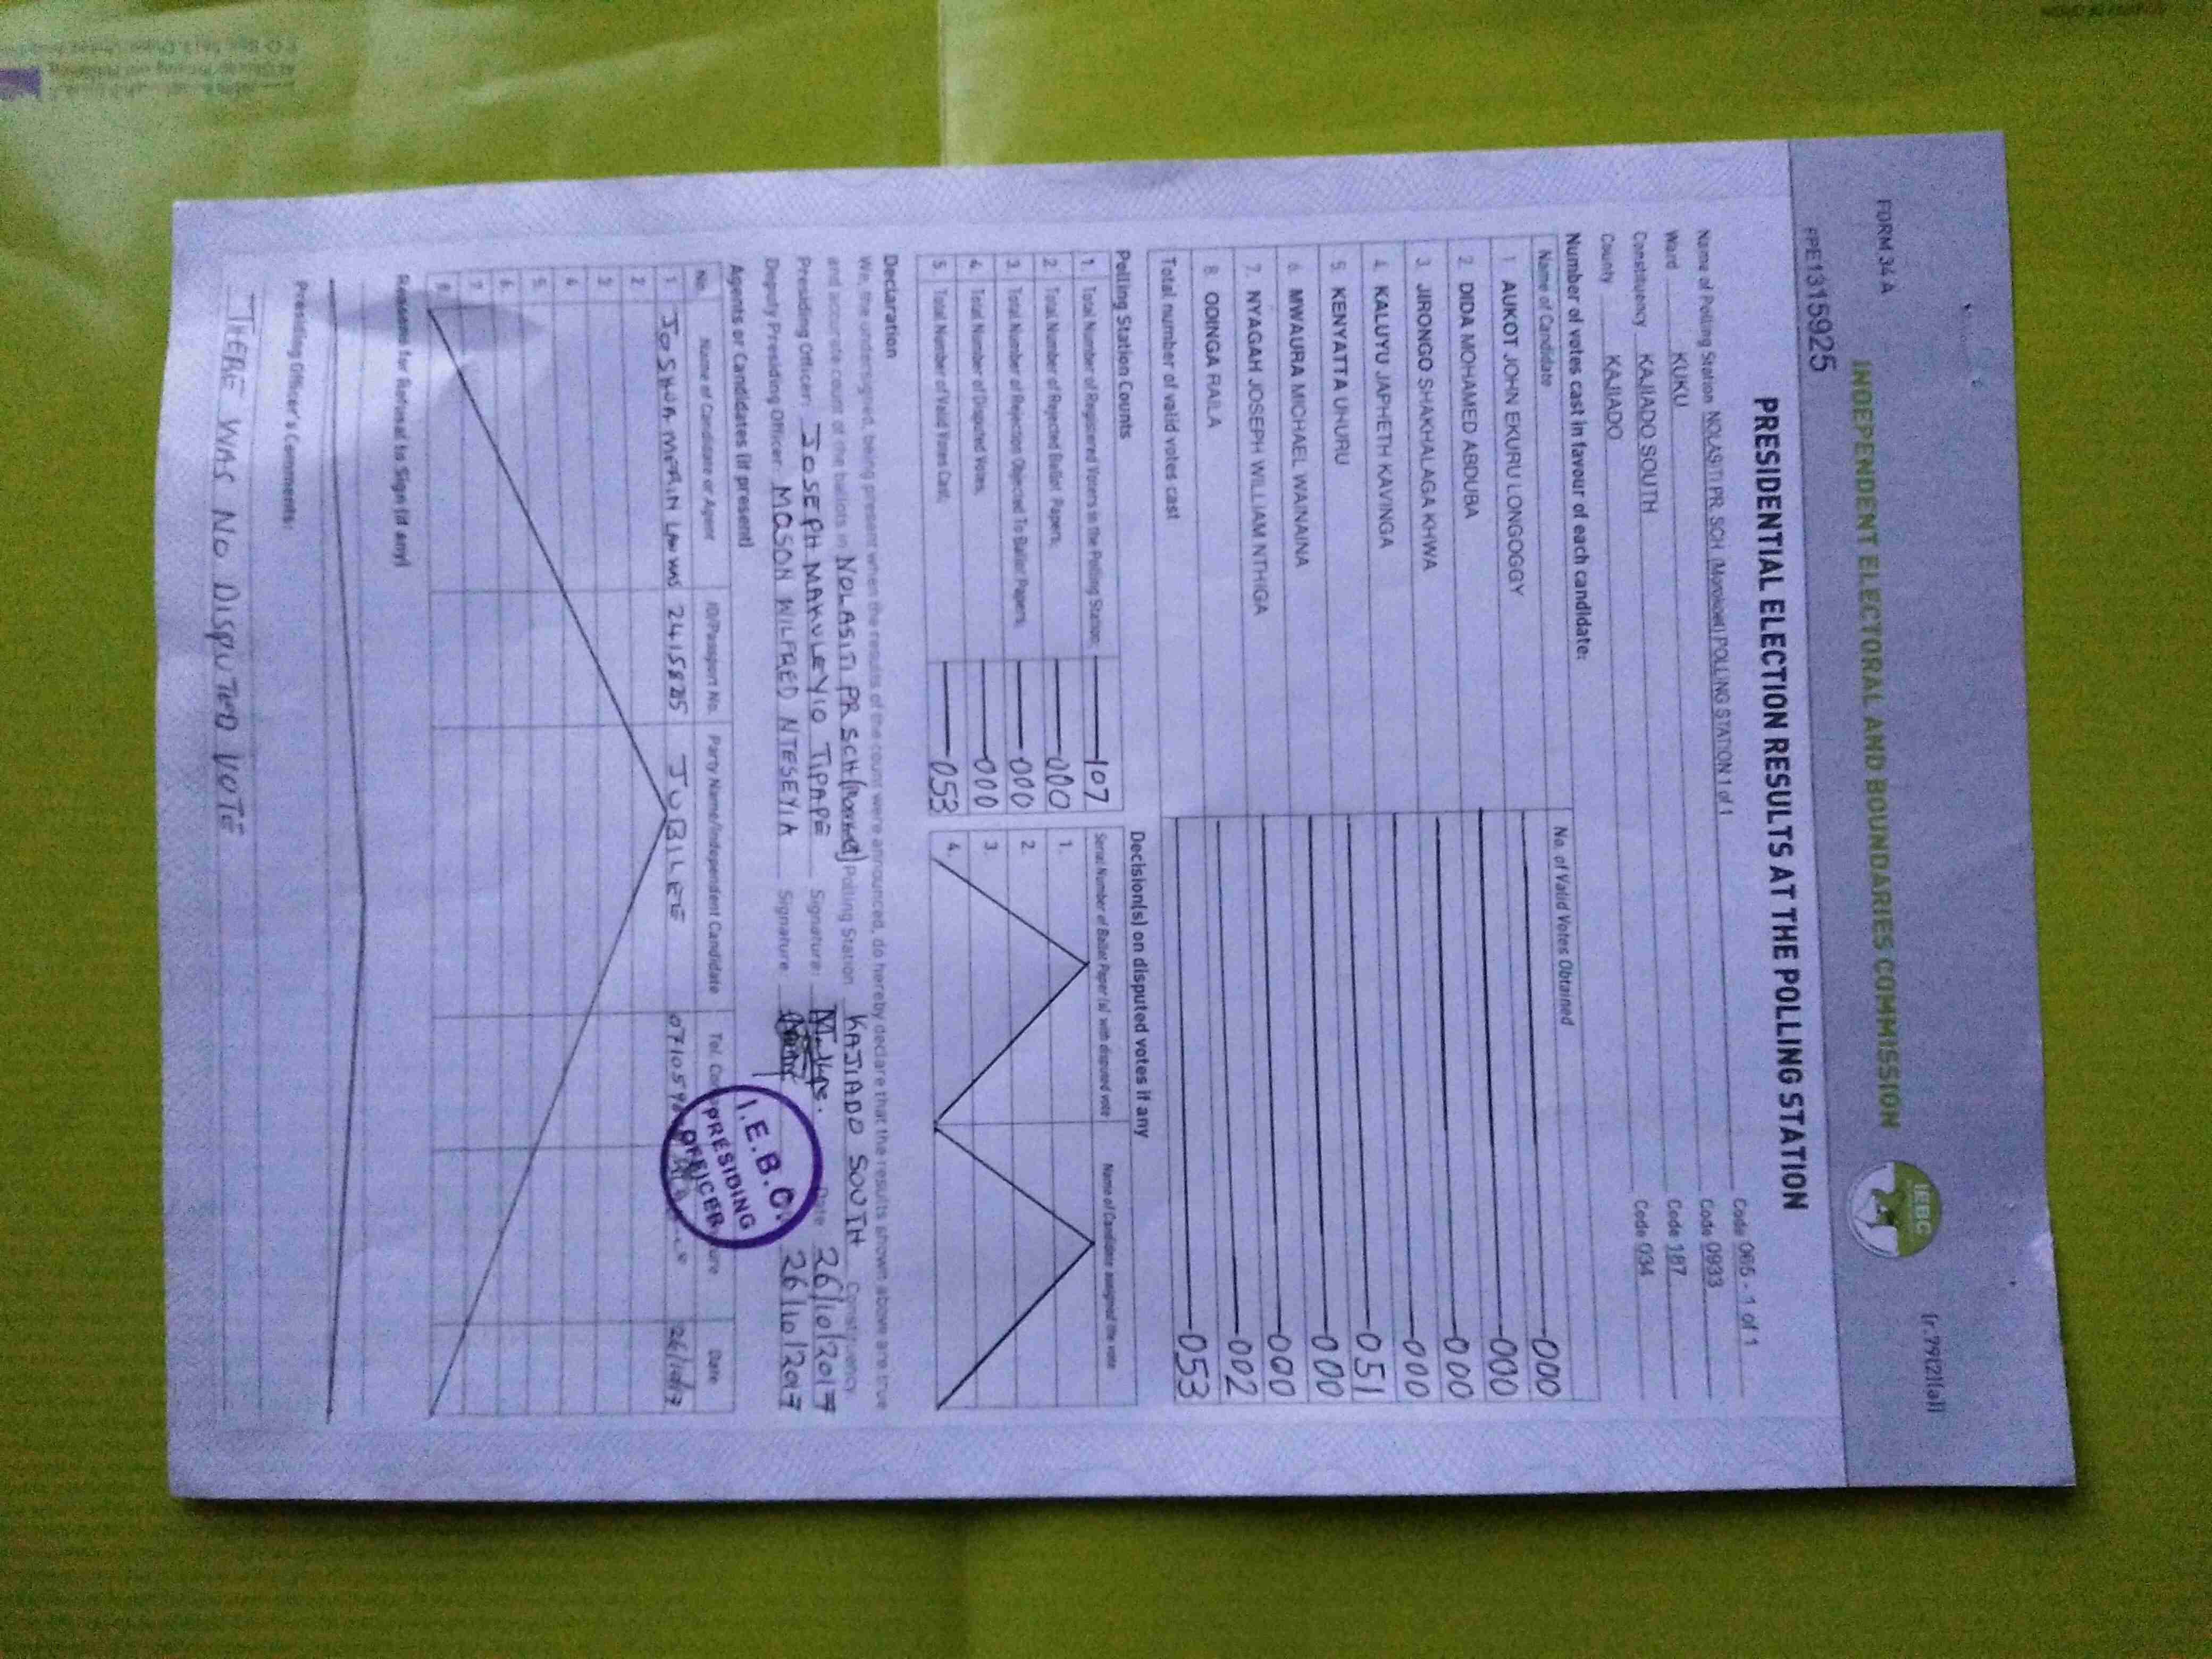 FORM 34A
(r.79(2)(a))
INDEPENDENT ELECTORAL AND BOUNDARIES COMMISSION
IEBC
PPE1315925
PRESIDENTIAL ELECTION RESULTS AT THE POLLING STATION
Name of Polling Station NOLASITI PR. SCH. (Morokowi) POLLING STATION 1 of 1 Code 065 - 1 of 1
Ward KUKU Code 0933
Constituency KAJIADO SOUTH Code 187
County KAJIADO Code 034
Number of votes cast in favour of each candidate:
Name of Candidate No. of Valid Votes Obtained
1. AUKOT JOHN EKURU LONGOGGY 000
2. DIDA MOHAMED ABDUBA 000
3. JIRONGO SHAKHALAGA KHWA 000
4. KALUYU JAPHETH KAVINGA 000
5. KENYATTA UHURU 051
6. MWAURA MICHAEL WAINAINA 000
7. NYAGAH JOSEPH WILLIAM NTHIGA 000
8. ODINGA RAILA 002
Total number of valid votes cast 053
Polling Station Counts
1. Total Number of Registered Voters in the Polling Station; 107
2. Total Number of Rejected Ballot Papers; 000
3. Total Number of Rejection Objected To Ballot Papers; 000
4. Total Number of Disputed Votes; 000
5. Total Number of Valid Votes Cast; 053
Decision(s) on disputed votes if any
Serial Number of Ballot Paper (s) with disputed vote Name of Candidate assigned the vote
1.
2.
3.
4.
Declaration
We, the undersigned, being present when the results of the count were announced, do hereby declare that the results shown above are true
and accurate count of the ballots in NOLASITI PR SCH Polling Station KAJIADO SOUTH Constituency
Presiding Officer: JOSEPH MAKULEYIO TIPAPE Signature: Date 26/10/2017
Deputy Presiding Officer: MOSON WILFRED NTESEYIA Signature 26/10/2017
I.E.B.C. PRESIDING OFFICER
Agents or Candidates (if present)
No. Name of Candidate or Agent ID/Passport No. Party Name/Independent Candidate Date
1 JOSHUA 2415825 JUBILEE 26/10/17
2
3
4
5
6
7
8
Reasons for Refusal to Sign (if any)
Presiding Officer's Comments:
THERE WAS NO DISPUTED VOTE